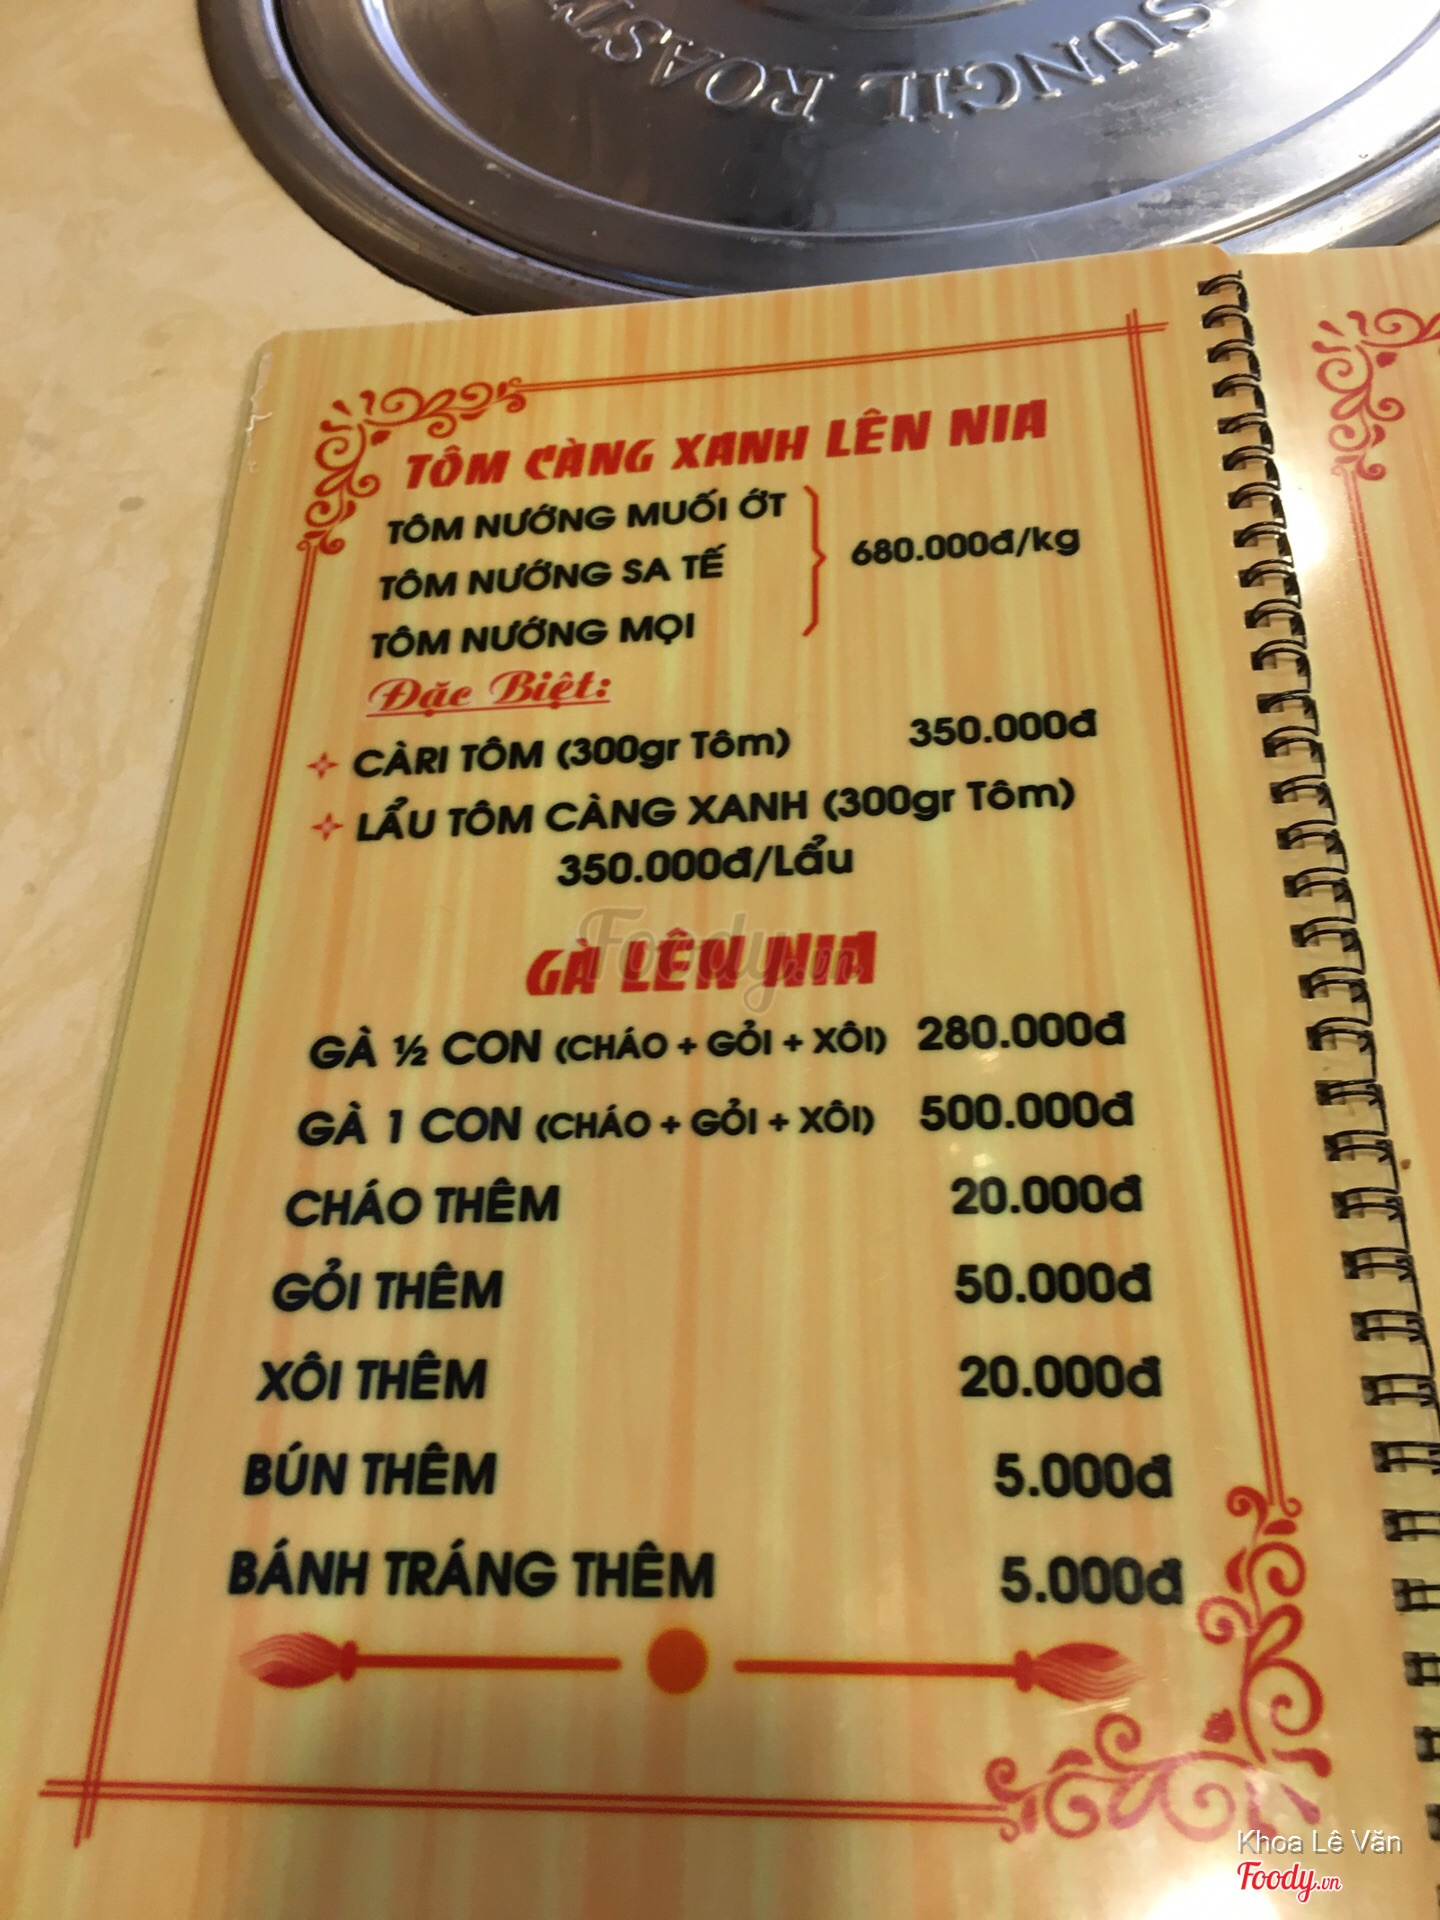 SUNGIL ROAST
TÔM CÀNG XANH LÊN NIA
TÔM NƯỚNG MUỐI ỚT
TÔM NƯỚNG SA TẾ 680.000đ/kg
TÔM NƯỚNG MỌI
Đặc Biệt:
CÀRI TÔM (300gr Tôm) 350.000đ
LẨU TÔM CÀNG XANH (300gr Tôm)
350.000đ/Lẩu
Foody.vn
GÀ LÊN NIA
GÀ ½ CON (CHÁO + GỎI + XÔI) 280.000đ
GÀ 1 CON (CHÁO + GỎI + XÔI) 500.000đ
CHÁO THÊM 20.000đ
GỎI THÊM 50.000đ
XÔI THÊM 20.000đ
BÚN THÊM 5.000đ
BÁNH TRÁNG THÊM 5.000đ
Khoa Lê Văn
Foody.vn